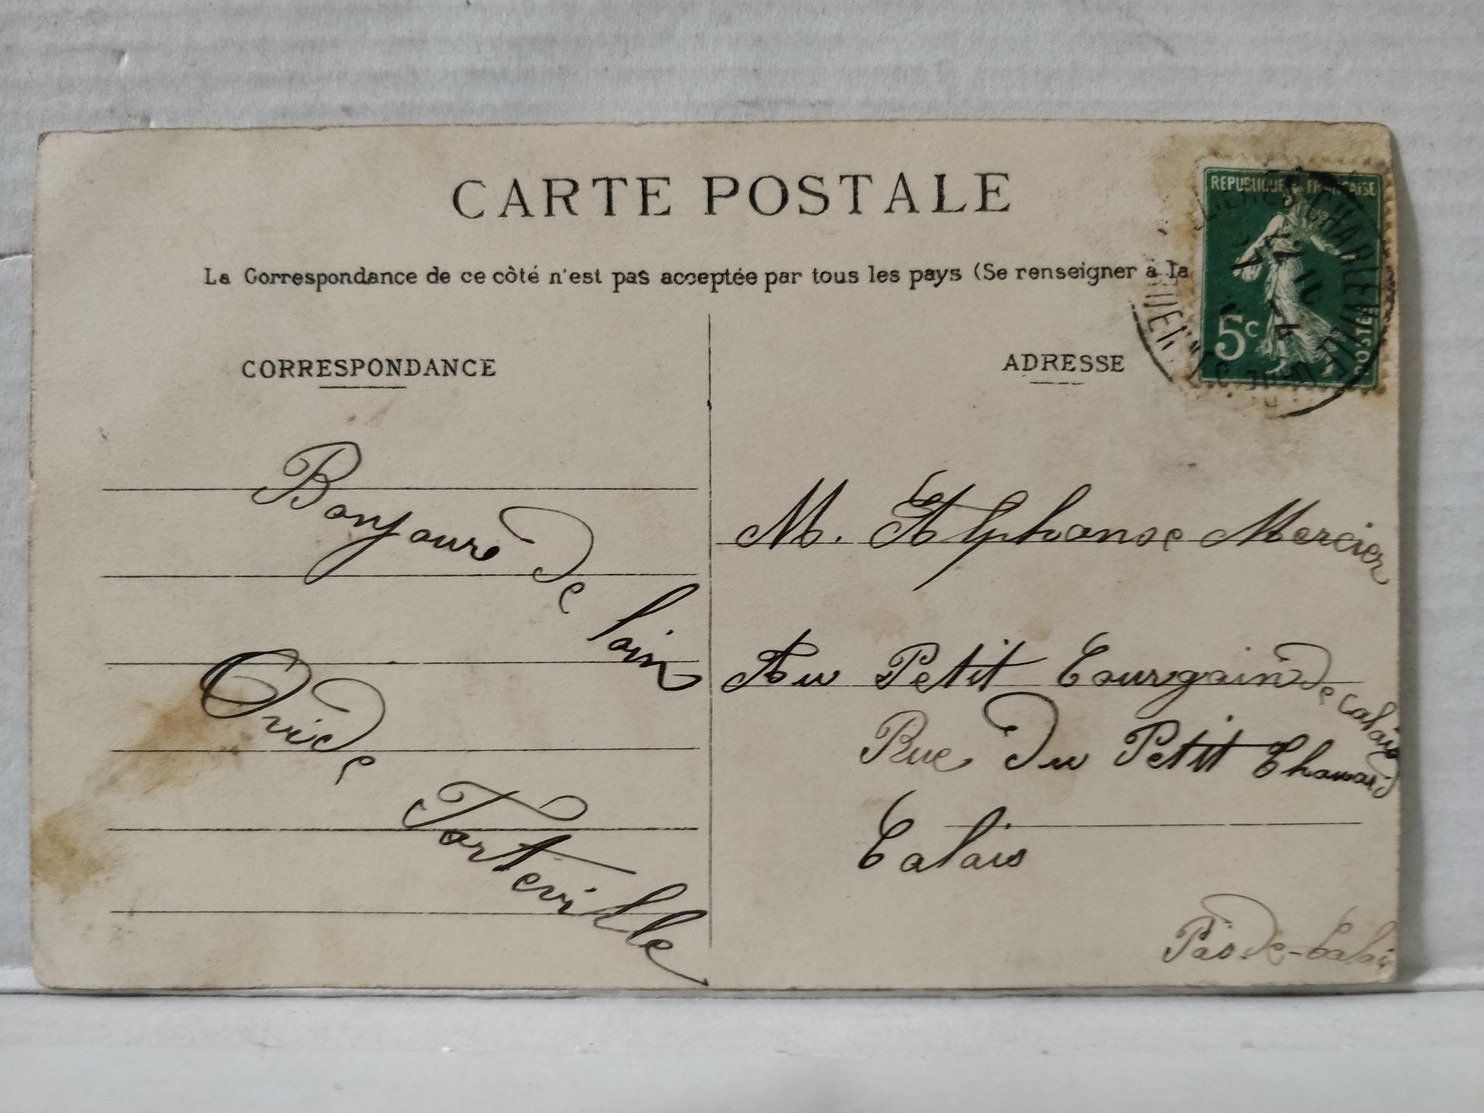 CARTE POSTALE
La Correspondance de ce côté n'est pas acceptée par tous les pays (Se renseigner à la
CORRESPONDANCE
Bonjour de loin
Ovide
Torteville
ADRESSE
REPUBLIQUE FRANÇAISE
5c
POSTES
CHARLEVILLE
M. Alphonse Mercier
Au Petit Courgain de Calais
Rue Du Petit
Calais
Pas-de-Calais